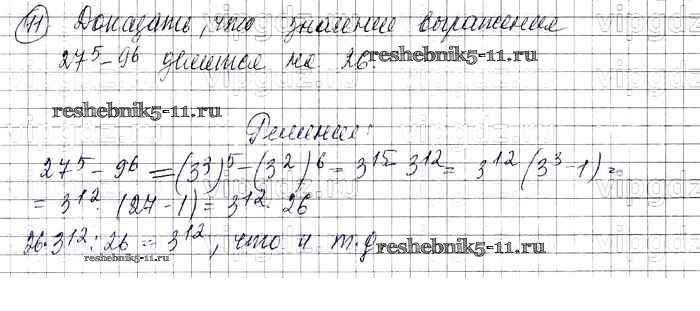 11 Доказать, что значение выражения
27⁵ - 9⁶ делится на 26. reshebnik5-11.ru
reshebnik5-11.ru
Решение:
27⁵ - 9⁶ = (3³)⁵ - (3²)⁶ = 3¹⁵ - 3¹² = 3¹² (3³ - 1) =
= 3¹² · (27 - 1) = 3¹² · 26
26 · 3¹² : 26 = 3¹², что и т.д. reshebnik5-11.ru
reshebnik5-11.ru